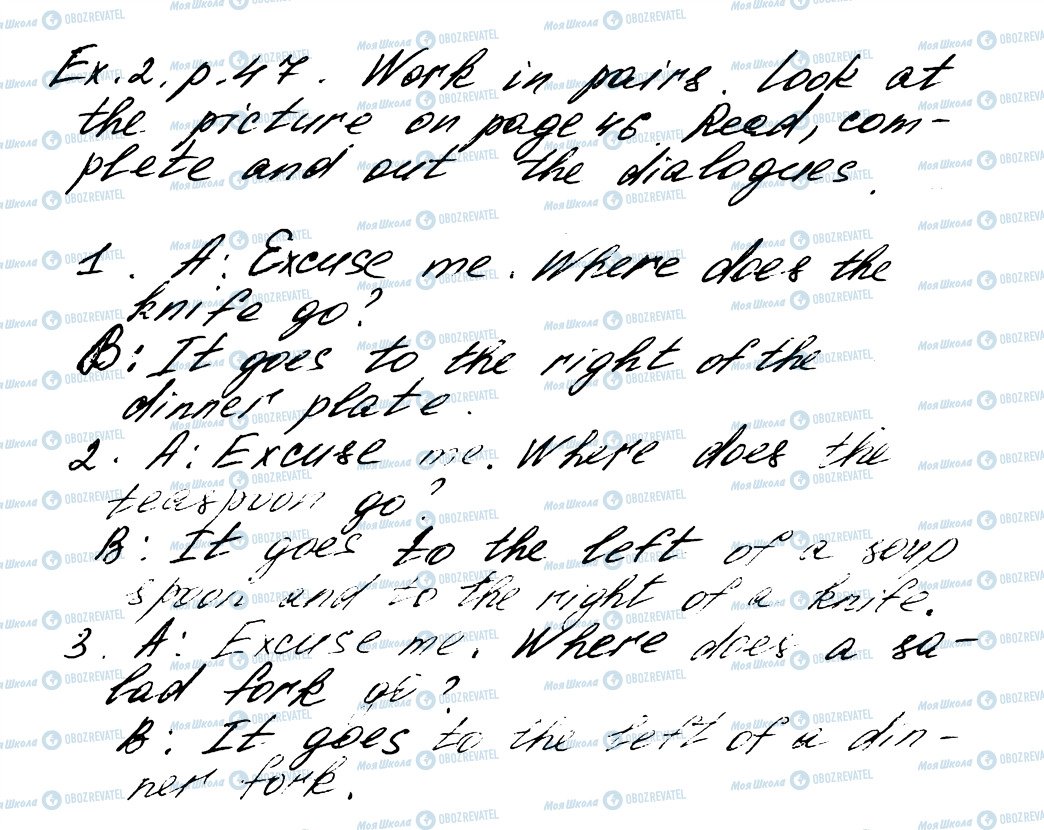 Ex. 2. p. 47. Work in pairs. Look at
the picture on page 46. Read, com-
plete and out the dialogues.
1. A: Excuse me. Where does the
knife go?
B: It goes to the right of the
dinner plate.
2. A: Excuse me. Where does the
teaspoon go?
B: It goes to the left of a soup
spoon and to the right of a knife.
3. A: Excuse me. Where does a sa-
lad fork go?
B: It goes to the left of a din-
ner fork.